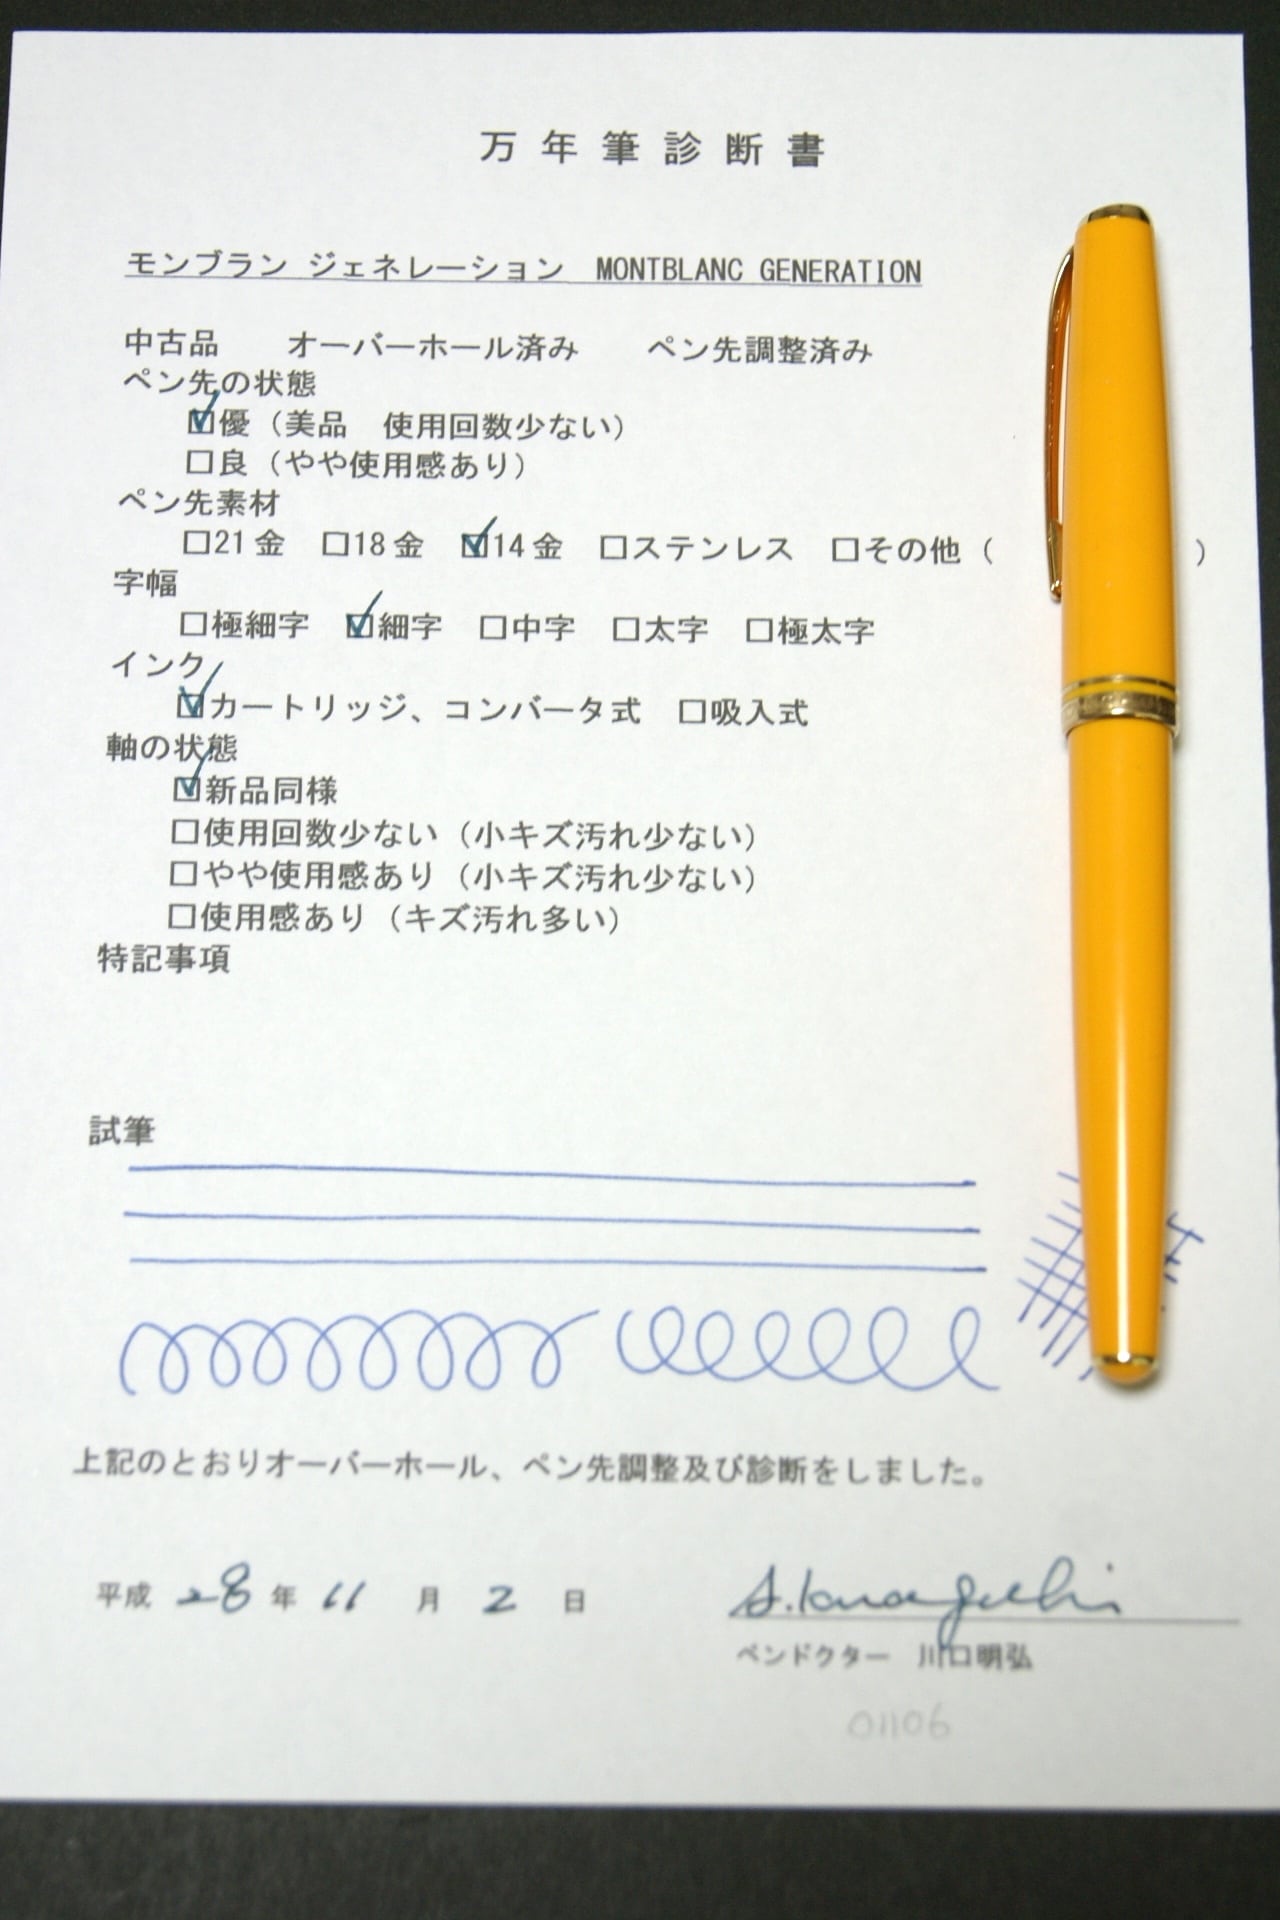 万年筆診断書
モンブラン ジェネレーション　MONTBLANC GENERATION
中古品　　オーバーホール済み　　ペン先調整済み
ペン先の状態
☑優（美品　使用回数少ない）
□良（やや使用感あり）
ペン先素材
□21金　□18金　☑14金　□ステンレス　□その他（　　　　　　）
字幅
□極細字　☑細字　□中字　□太字　□極太字
インク
☑カートリッジ、コンバータ式　□吸入式
軸の状態
☑新品同様
□使用回数少ない（小キズ汚れ少ない）
□やや使用感あり（小キズ汚れ少ない）
□使用感あり（キズ汚れ多い）
特記事項
試筆
上記のとおりオーバーホール、ペン先調整及び診断をしました。
平成 28 年 11 月 2 日
A. Kawaguchi
ペンドクター　川口明弘
01106